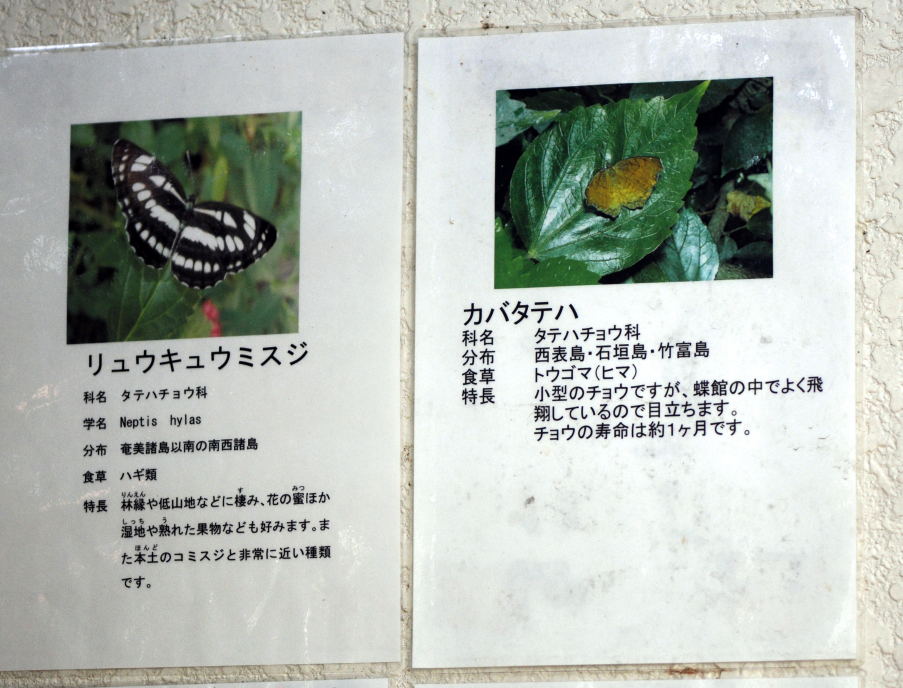 リュウキュウミスジ
科名 タテハチョウ科
学名 Neptis hylas
分布 奄美諸島以南の南西諸島
食草 ハギ類
特長 林縁や低山地などに棲み、花の蜜ほか
湿地や熟れた果物なども好みます。ま
た本土のコミスジと非常に近い種類
です。
りんえん
す
みつ
しっち
う
ほんど
カバタテハ
科名 タテハチョウ科
分布 西表島・石垣島・竹富島
食草 トウゴマ(ヒマ)
特長 小型のチョウですが、蝶館の中でよく飛
翔しているので目立ちます。
チョウの寿命は約1ヶ月です。